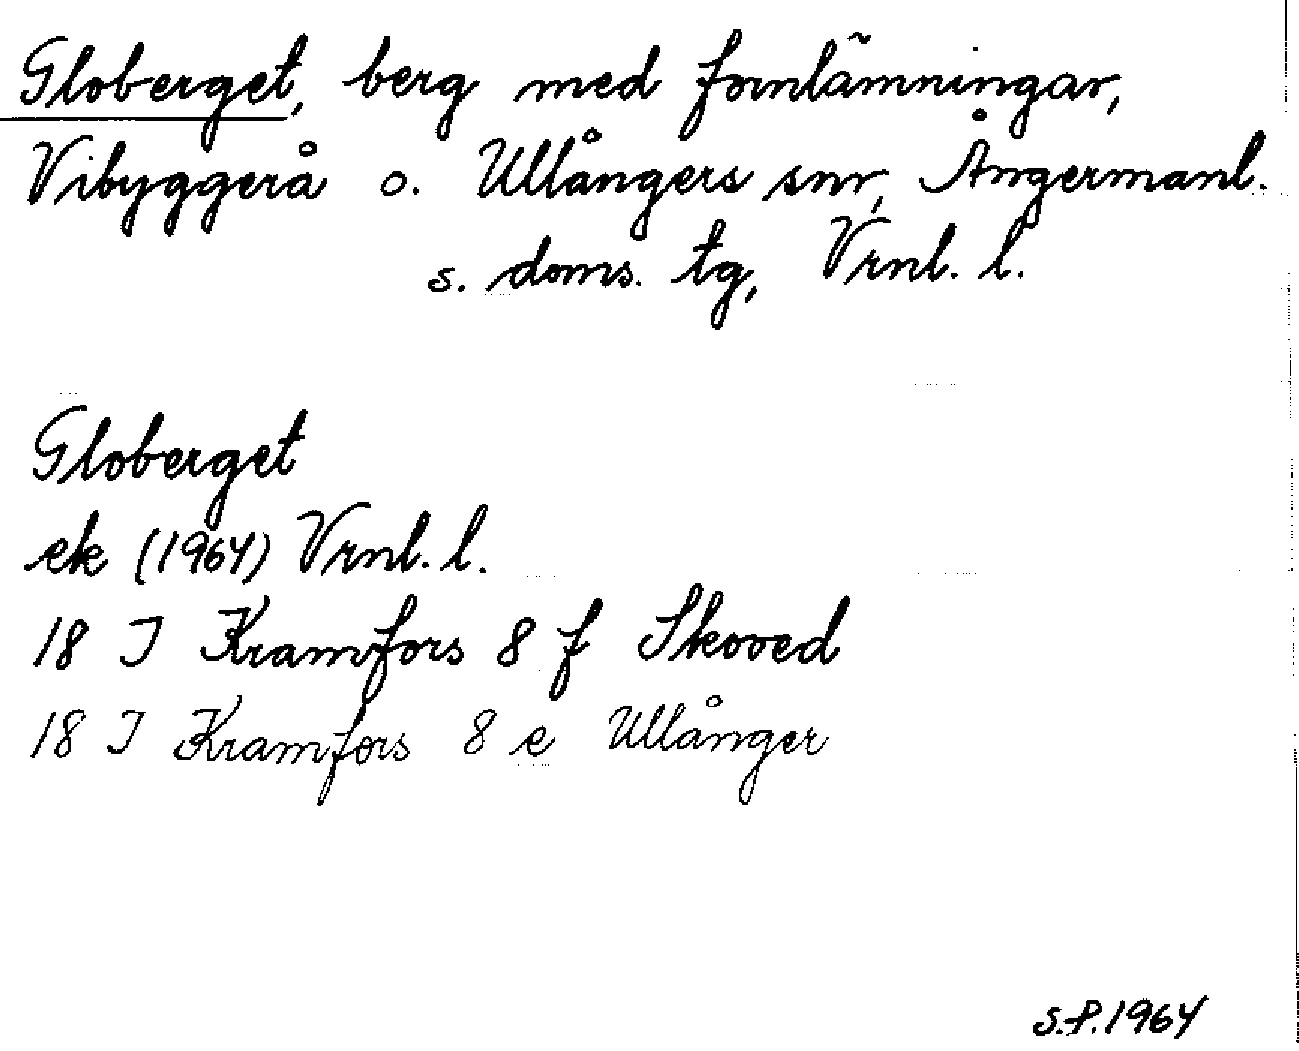 Globerget, berg med fornlämningar,
Vibyggerå o. Ullångers snr, Ångermanl.
s. doms. tg, Vrnl. l.
Globerget
ek (1964) Vrnl. l.
18 I Kramfors 8 f Skoved
18 I Kramfors 8 e Ullånger
S.P. 1964